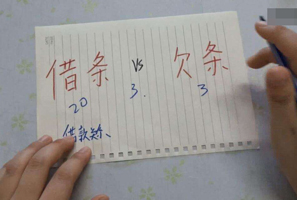 借条 VS 欠条
20 3. 3
借款关系、